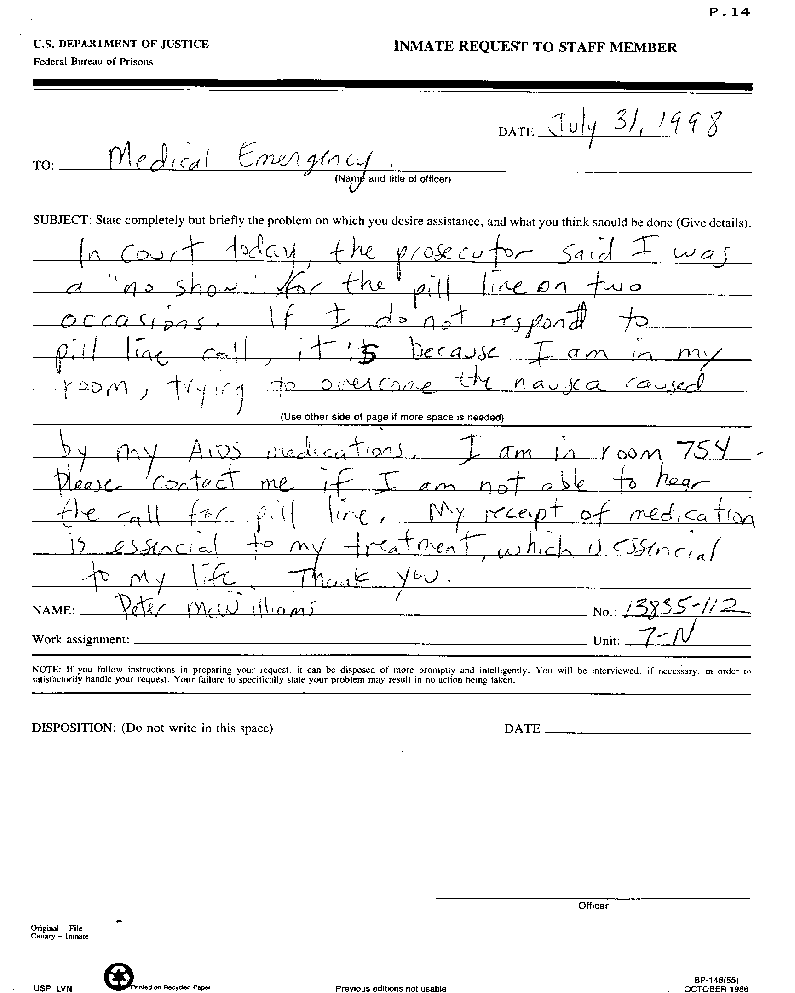 P.14
U.S. DEPARTMENT OF JUSTICE
INMATE REQUEST TO STAFF MEMBER
Federal Bureau of Prisons
DATE July 31, 1998
TO: Medical Emergency.
(Name and title of officer)
SUBJECT: State completely but briefly the problem on which you desire assistance, and what you think should be done (Give details).
In court today, the prosecutor said I was
a "no show" for the pill line on two
occasions. If I do not respond to
pill line call, it's because I am in my
room, trying to overcome the nausea caused
(Use other side of page if more space is needed)
by my AIDS medications. I am in room 754.
Please contact me if I am not able to hear
the call for pill line. My receipt of medication
is essencial to my treatment, which is essencial
to my life. Thank you.
NAME: Peter McWilliams No.: 13835-112
Work assignment: Unit: 7-N
NOTE: If you follow instructions in preparing your request, it can be disposed of more promptly and intelligently. You will be interviewed, if necessary, in order to
satisfactorily handle your request. Your failure to specifically state your problem may result in no action being taken.
DISPOSITION: (Do not write in this space) DATE
Officer
Original - File
Canary - Inmate
USP LVN
Printed on Recycled Paper
Previous editions not usable
BP-148(55)
OCTOBER 1986